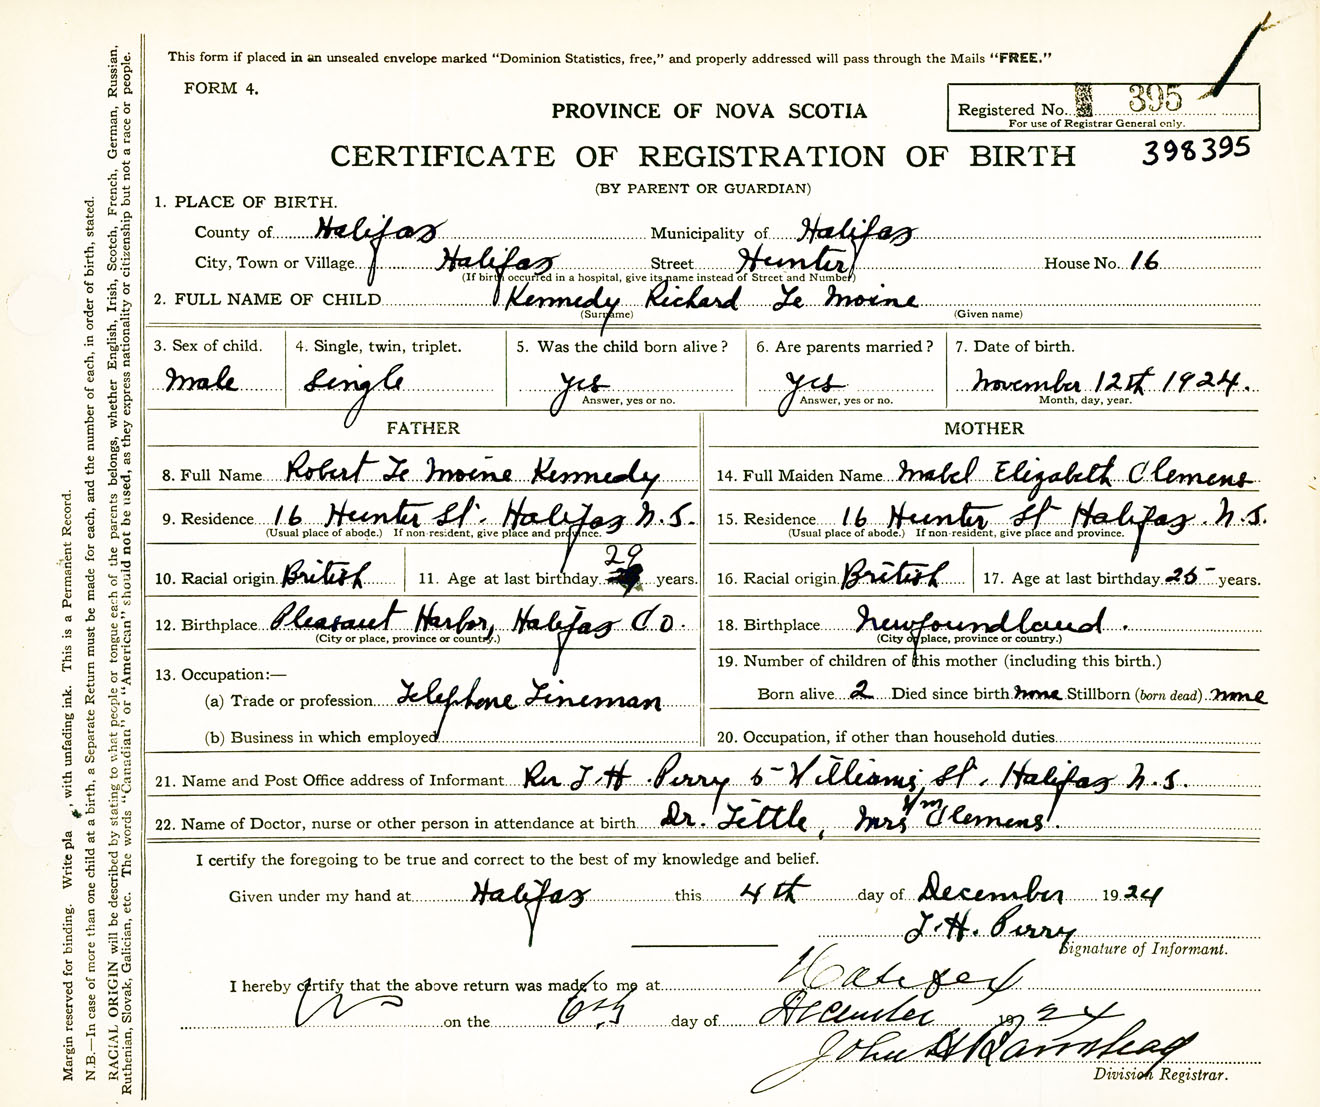 This form if placed in an unsealed envelope marked “Dominion Statistics, free,” and properly addressed will pass through the Mails “FREE.”
FORM 4.
PROVINCE OF NOVA SCOTIA
Registered No. 395
For use of Registrar General only.
CERTIFICATE OF REGISTRATION OF BIRTH
398395
(BY PARENT OR GUARDIAN)
1. PLACE OF BIRTH.
County of Halifax Municipality of Halifax
City, Town or Village Halifax Street Hunter House No. 16
(If birth occurred in a hospital, give its name instead of Street and Number)
2. FULL NAME OF CHILD Kennedy Richard Le Moine
(Surname) (Given name)
3. Sex of child. 4. Single, twin, triplet. 5. Was the child born alive? 6. Are parents married? 7. Date of birth.
Male Single yes yes November 12th 1924.
Answer, yes or no. Answer, yes or no. Month, day, year.
FATHER MOTHER
8. Full Name Robert Le Moine Kennedy 14. Full Maiden Name Mabel Elizabeth Clemens
9. Residence 16 Hunter St. Halifax N.S. 15. Residence 16 Hunter St Halifax. N.S.
(Usual place of abode.) If non-resident, give place and province. (Usual place of abode.) If non-resident, give place and province.
10. Racial origin British 11. Age at last birthday 29 years. 16. Racial origin British 17. Age at last birthday 25 years.
12. Birthplace Pleasant Harbor, Halifax Co. 18. Birthplace Newfoundland.
(City or place, province or country.) (City or place, province or country.)
13. Occupation:— 19. Number of children of this mother (including this birth.)
(a) Trade or profession Telephone Lineman Born alive 2 Died since birth none Stillborn (born dead) none
(b) Business in which employed 20. Occupation, if other than household duties
21. Name and Post Office address of Informant Rev J. H. Perry 5 Williams St. Halifax N.S.
22. Name of Doctor, nurse or other person in attendance at birth Dr. Little, Mrs Wm Clemens.
I certify the foregoing to be true and correct to the best of my knowledge and belief.
Given under my hand at Halifax this 4th day of December 1924
J. H. Perry
Signature of Informant.
I hereby certify that the above return was made to me at Halifax
on the 6th day of December 1924
John
Division Registrar.
Margin reserved for binding. Write pla , with unfading ink. This is a Permanent Record.
N.B.—In case of more than one child at a birth, a Separate Return must be made for each, and the number of each, in order of birth, stated.
RACIAL ORIGIN will be described by stating to what people or tongue each of the parents belongs, whether English, Irish, Scotch, French, German, Russian,
Ruthenian, Slovak, Galician, etc. The words “Canadian” or “American” should not be used, as they express nationality or citizenship but not a race or people.